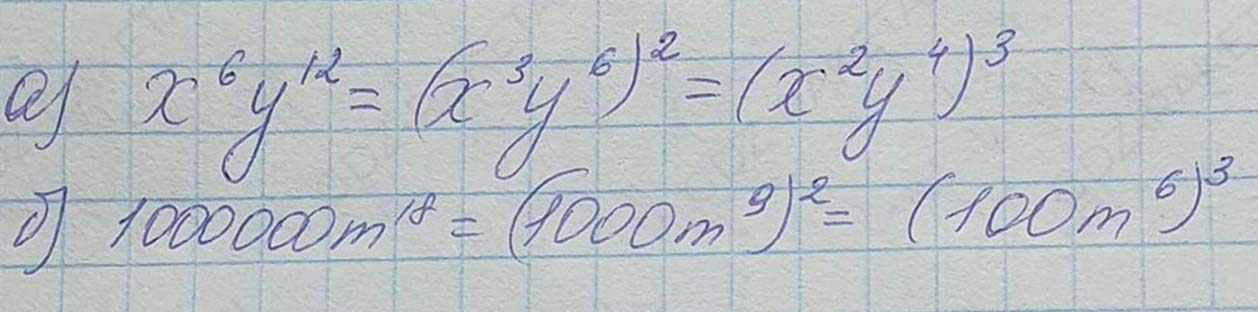 а) x⁶y¹² = (x³y⁶)² = (x²y⁴)³
б) 1000000m¹⁸ = (1000m⁹)² = (100m⁶)³